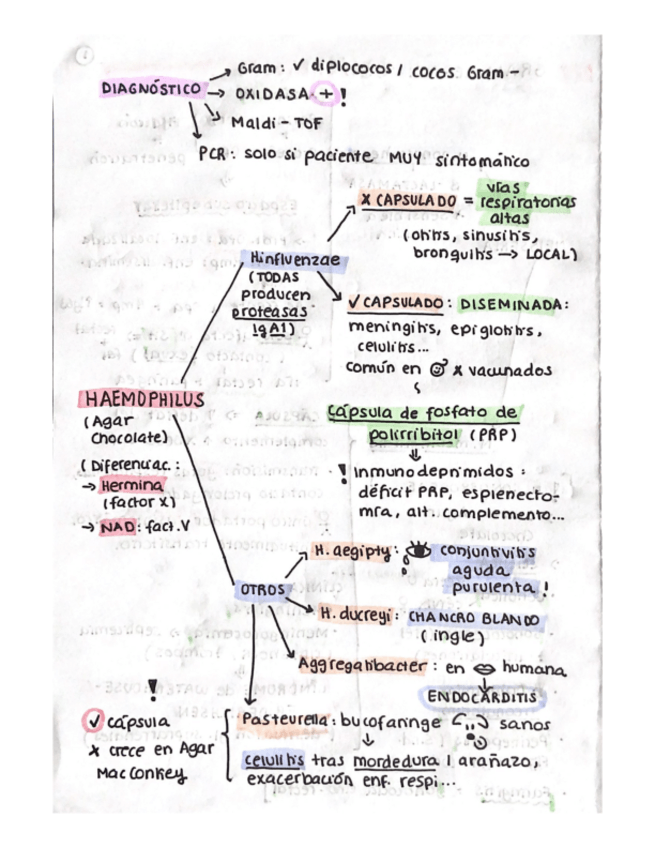 DIAGNÓSTICO
→ Gram: ✓ diplococos / cocos Gram -
→ OXIDASA + !
→ Maldi - TOF
→ PCR: solo si paciente MUY sintomático
HAEMOPHILUS
(Agar
Chocolate)
(Diferenciar:
→ Hermina
(factor X)
→ NAD: fact. V
H. influenzae
(TODAS
producen
proteasas
IgA1)
X CAPSULADO = vías
respiratorias
altas
(otitis, sinusitis,
bronquitis → LOCAL)
✓ CAPSULADO: DISEMINADA:
meningitis, epiglotitis,
celulitis...
común en x vacunados
Cápsula de fosfato de
polirribitol (PRP)
! Inmunodeprimidos:
déficit PRP, esplenecto-
mía, alt. complemento...
OTROS
H. aegipty: conjuntivitis
aguda
purulenta !
H. ducreyi: CHANCRO BLANDO
(ingle)
Aggregatibacter: en humana
ENDOCARDITIS
!
✓ cápsula
x crece en Agar
MacConkey
Pasteurella: bucofaringe sanos
celulitis tras mordedura / arañazo,
exacerbación enf. respi...